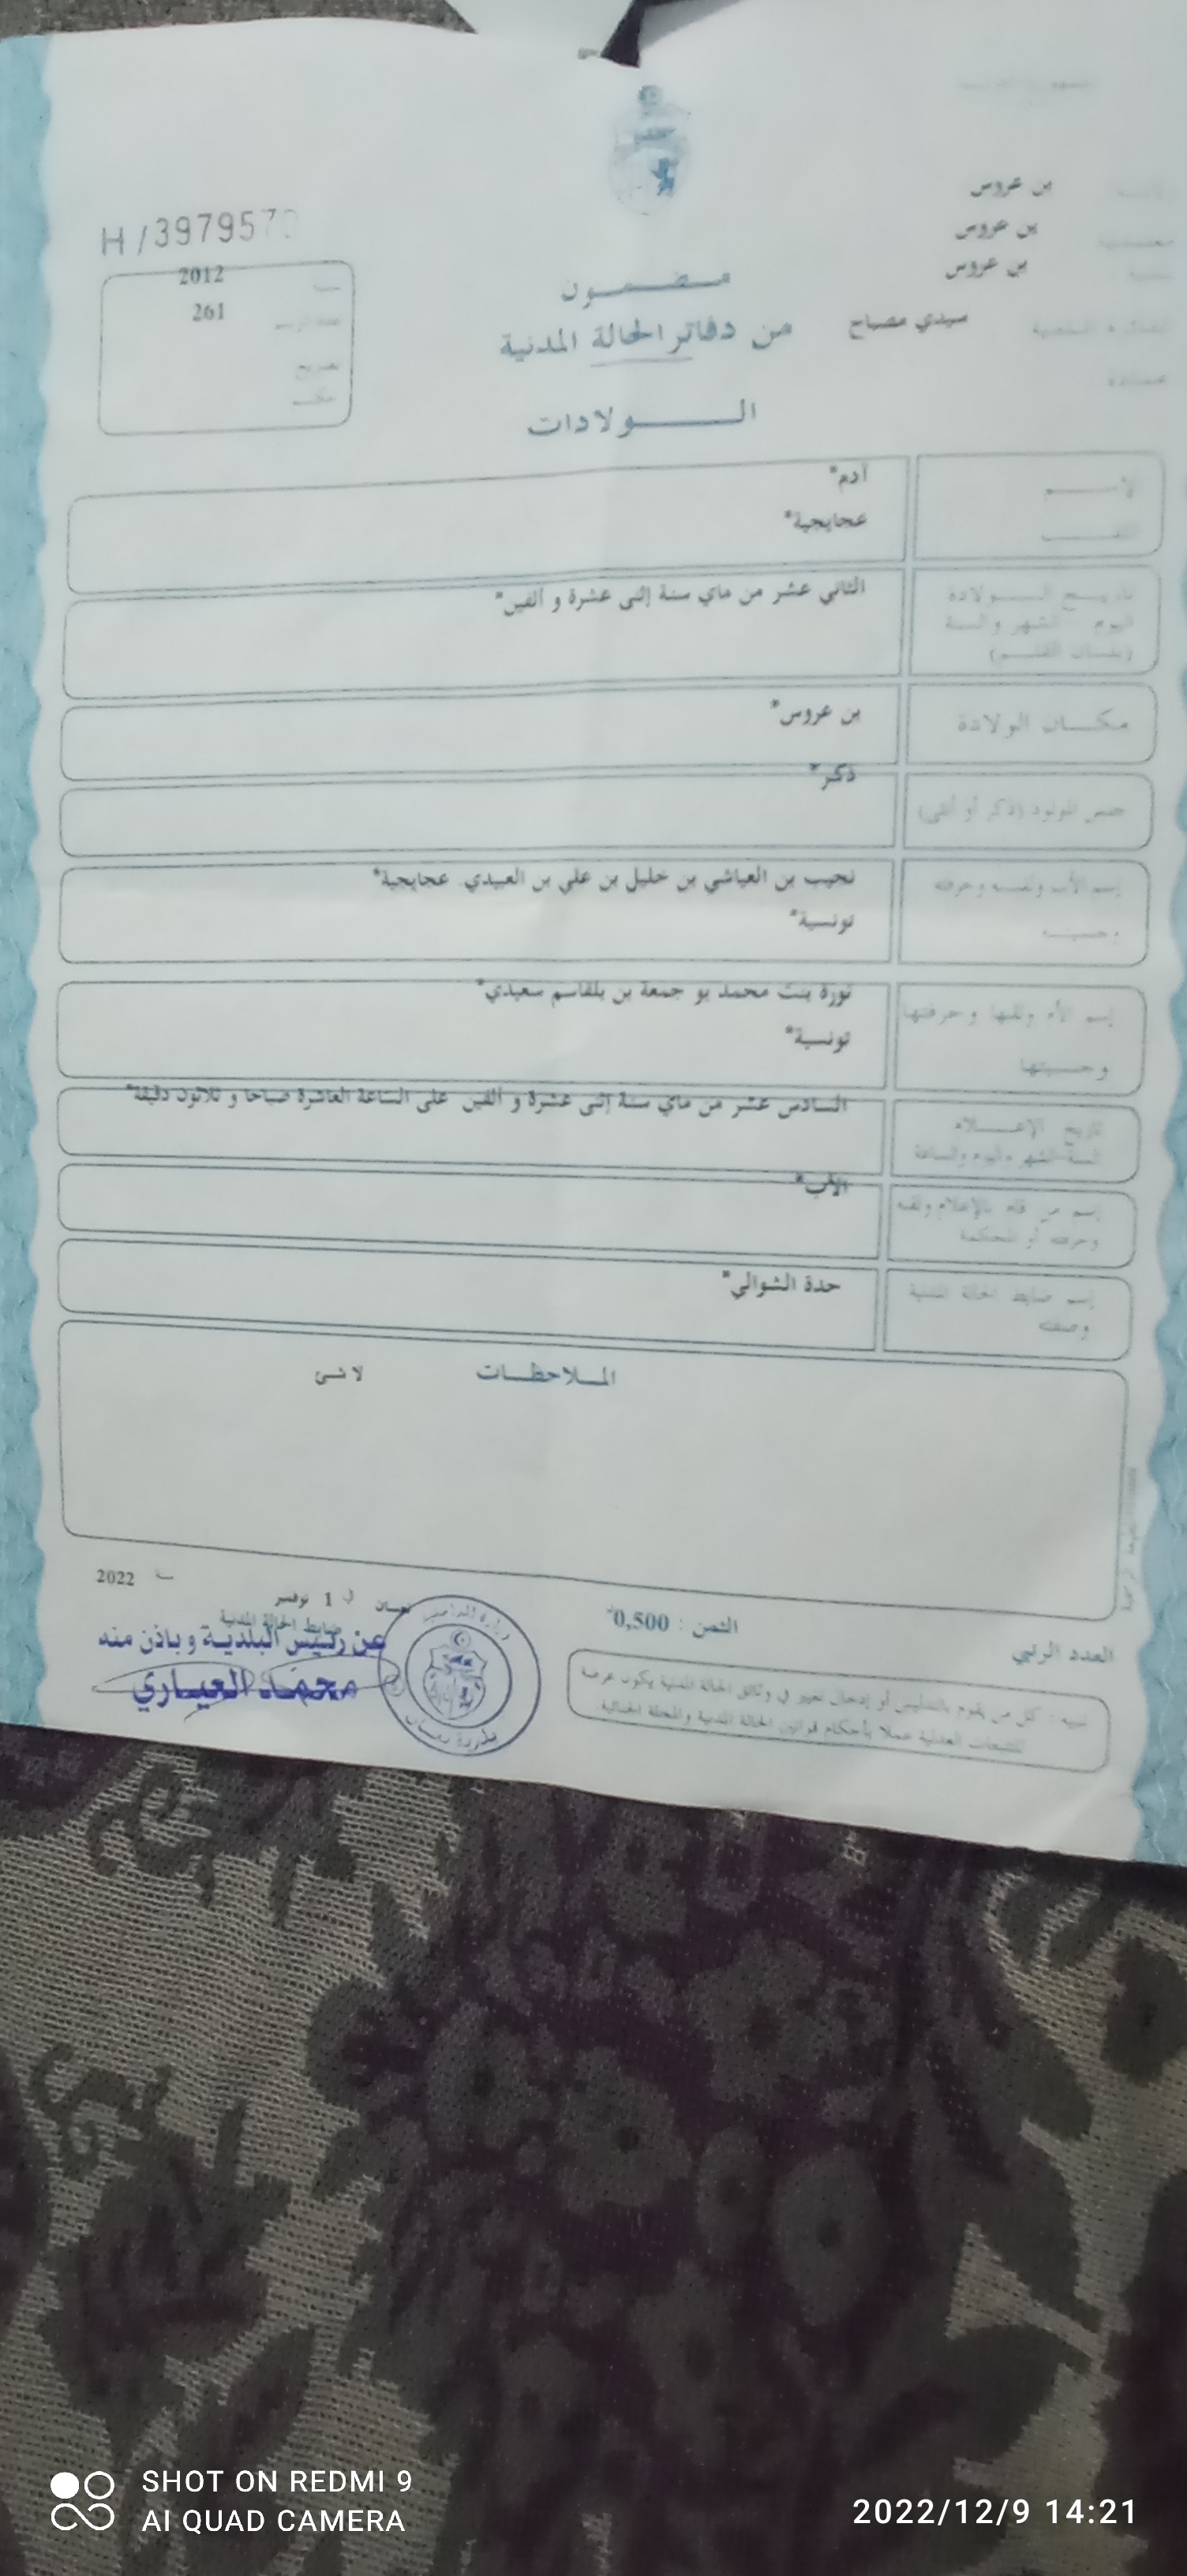 بن عروس
بن عروس
بن عروس
سيدي مصباح
H/397957
2012
261
مضمون
من دفاتر الحالة المدنية
الولادات
الاسم
آدم*
اللقب
عجايجية*
تاريخ الولادة
اليوم الشهر والسنة
(بلسان القلم)
الثاني عشر من ماي سنة إثنى عشرة و ألفين*
مكان الولادة
بن عروس*
جنس المولود (ذكر أو أنثى)
ذكر*
إسم الأب ولقبه وحرفته
وجنسيته
نجيب بن العياشي بن خليل بن علي بن العبيدي عجايجية*
تونسية*
إسم الأم ولقبها وحرفتها
وجنسيتها
نورة بنت محمد بو جمعة بن بلقاسم سعيدي*
تونسية*
تاريخ الإعلام
السنة الشهر واليوم والساعة
السادس عشر من ماي سنة إثنى عشرة و ألفين على الساعة العاشرة صباحا و ثلاثون دقيقة*
إسم من قام بالإعلام ولقبه
وحرفته أو المحكمة
الأب*
إسم ضابط الحالة المدنية
وصفته
حدة الشوالي*
الملاحظات لا شئ
في 1 نوفمبر سنة 2022
ضابط الحالة المدنية
عن رئيس البلدية وباذن منه
محمد العياري
الثمن : 0,500*
العدد الرتبي
تنبيه : كل من يقوم بالتدليس أو إدخال تغيير في وثائق الحالة المدنية يكون عرضة
للتتبعات العدلية عملا بأحكام قوانين الحالة المدنية والمجلة الجنائية
SHOT ON REDMI 9
AI QUAD CAMERA
2022/12/9 14:21